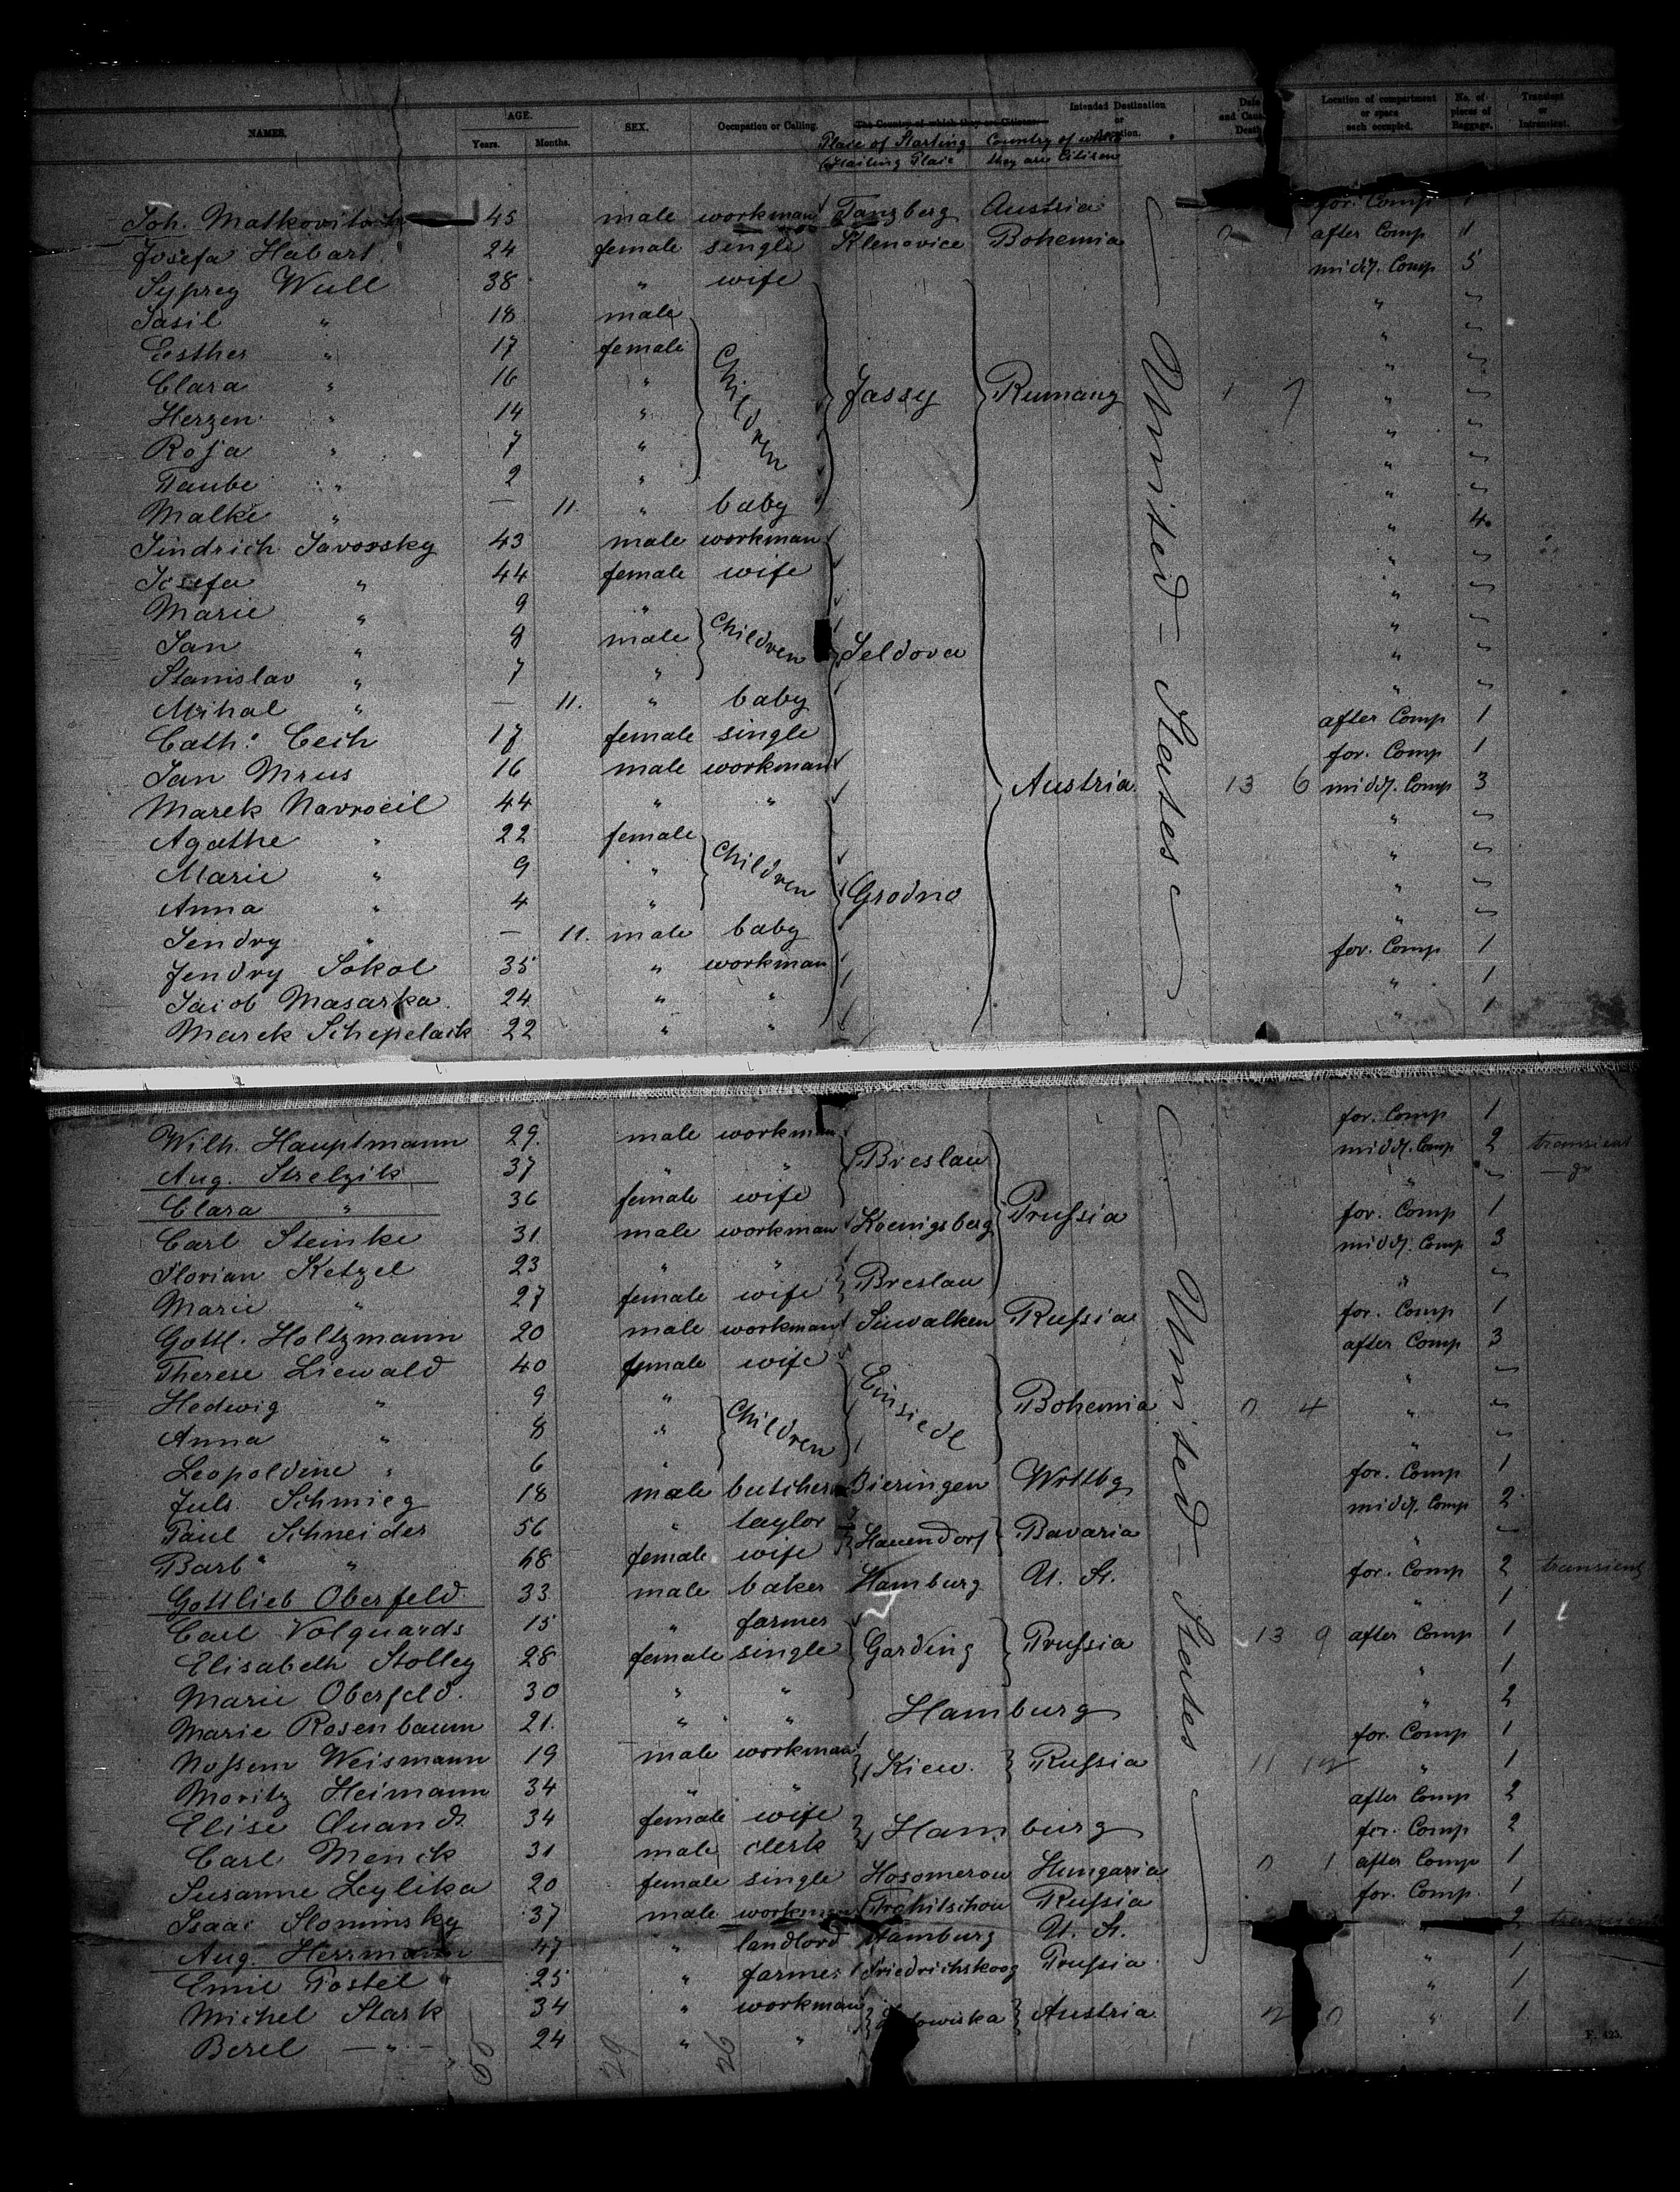 NAMES. AGE. SEX. Occupation or Calling. The Country of which they are Citizens. Intended Destination or Location. Date and Cause Death Location of compartment or space each occupied. No. of pieces of Baggage. Transient or Intransient.
Years. Months. Place of Starting Country of which
Mailing Place they are Citizen
Joh. 45 male workman Tanzberg Austria for. Comp 1
Josefa Habart 24 female single Klenovice Bohemia after Comp 1
Syprey Wull 38 " wife midd. Comp 5
Sasil " 18 male "
Esther " 17 female "
Clara " 16 " Children Jassy Rumany "
Herzen " 14 " "
Rosa " 7 " "
Taube " 2 " "
Malke " — 11. " baby "
Jindrich Javorsky 43 male workman " 4
Josefa " 44 female wife "
Marie " 9 " "
Jan " 8 male Children Seldova "
Stanislav " 7 " "
Mihal " — 11. " baby "
Cath: Cech 17 female single after Comp 1
Jan Mrus 16 male workman for. Comp 1
Marek Navroeil 44 " " Austria 13 6 midd. Comp 3
Agathe " 22 female "
Marie " 9 " Children "
Anna " 4 " Grodno "
Jendry " — 11. male baby "
Jendry Sokol 35 " workman for. Comp 1
Jacob Masarka 24 " " " 1
Marek Schepelack 22 " " " 1
United States
Wilh. Hauptmann 29. male workman for. Comp 1
Aug. Strelzik 37 " " Breslau midd. Comp 2 transient
Clara " 36 female wife "
Carl Steinke 31 male workman Koenigsberg Prussia for. Comp 1
Florian Ketzel 23 " " midd. Comp 3
Marie " 27 female wife Breslau "
Gottl. Holtzmann 20 male workman Suwalken Russia for. Comp 1
Therese Liewald 40 female wife after Comp 3
Hedwig " 9 " Einsiedl Bohemia 0 4 "
Anna " 8 " Children "
Leopoldine " 6 " "
Juls Schmieg 18 male butcher Bieringen Wrttbg for. Comp 1
Paul Schneider 56 " taylor midd. Comp 2
Barb " 48 female wife Hauendorf Bavaria "
Gottlieb Oberfeld 33 male baker Hamburg U. St. for. Comp 2 transient
Carl Volquards 15 " farmer " 1
Elisabeth Stolley 28 female single Garding Prussia 13 9 after Comp 1
Marie Oberfeld. 30 " " " 1
Marie Rosenbaum 21. " " Hamburg " 2
Nossem Weismann 19 male workman for. Comp 1
Moritz Heimann 34 " " Kiew. Russia " 1
Elise Quandt 34 female wife after Comp 2
Carl Menck 31 male clerk Hamburg for. Comp 2
Susanne Leylika 20 female single Hosomerow Hungaria 0 1 after Comp 1
Isaac Slominsky 37 male workman Russia for. Comp. 1
Aug. Herrmann 47 " landlord Hamburg U. St. 2
Emil Postel 25 " farmer Friedrichskoog Prussia " 1
Michel Stark 34 " workman " 1
Berel — " — 24 " " Austria " 1
United States
29 26
F. 425.